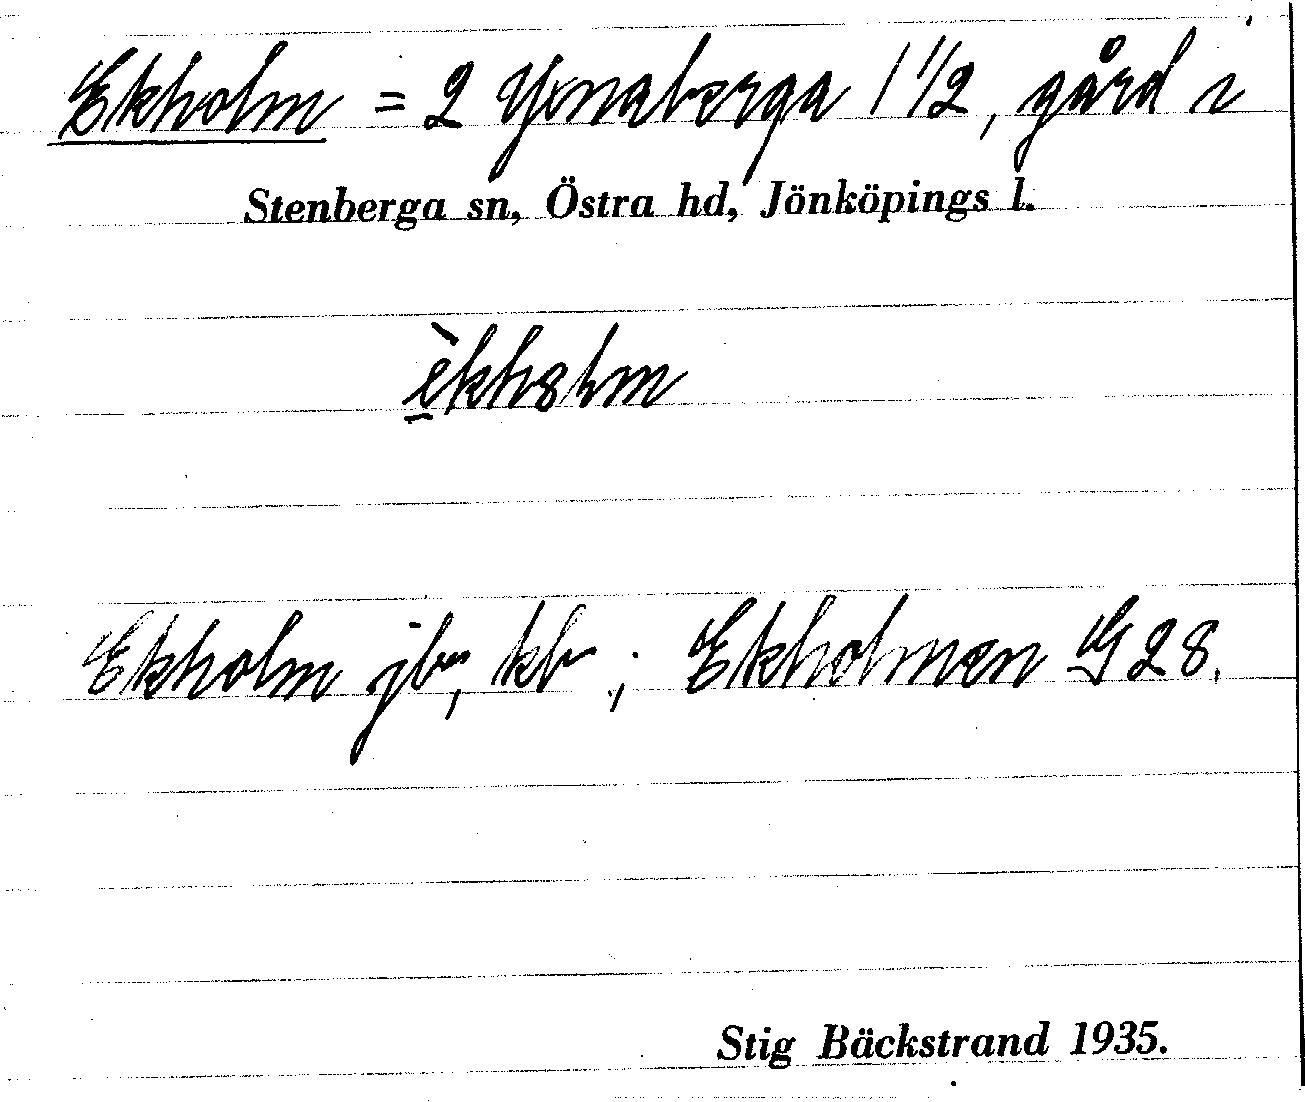 Ekholm = 2 Yxnaberga 1 1/2, gård i
Stenberga sn, Östra hd, Jönköpings l.
èkhɵlm
Ekholm jb, kb ; Ekholmen G 28.
Stig Bäckstrand 1935.